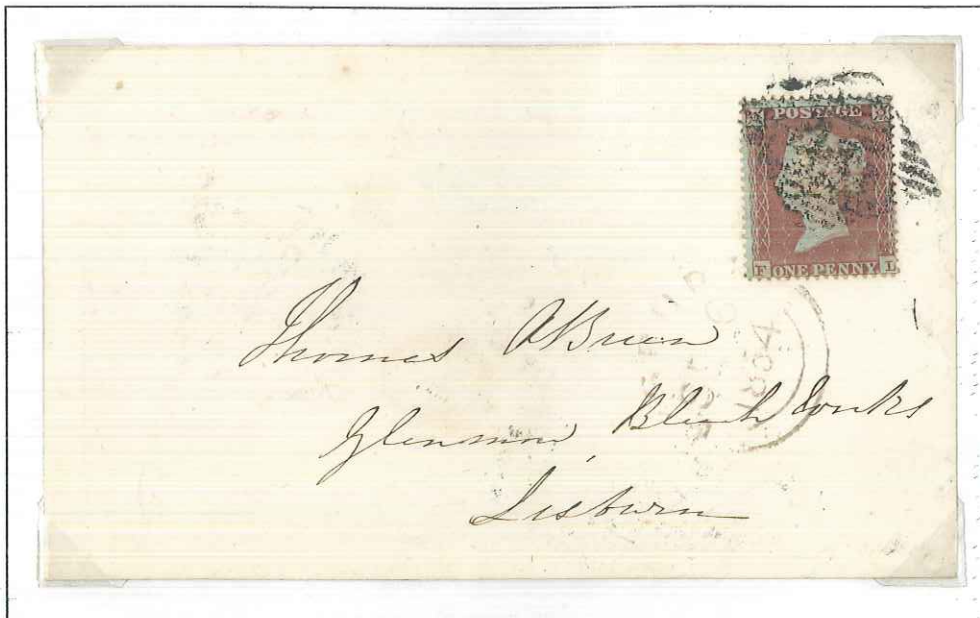 POSTAGE
F ONE PENNY L
1854
Thomas O'Brien
Glenmore Bleach Works
Lisburn